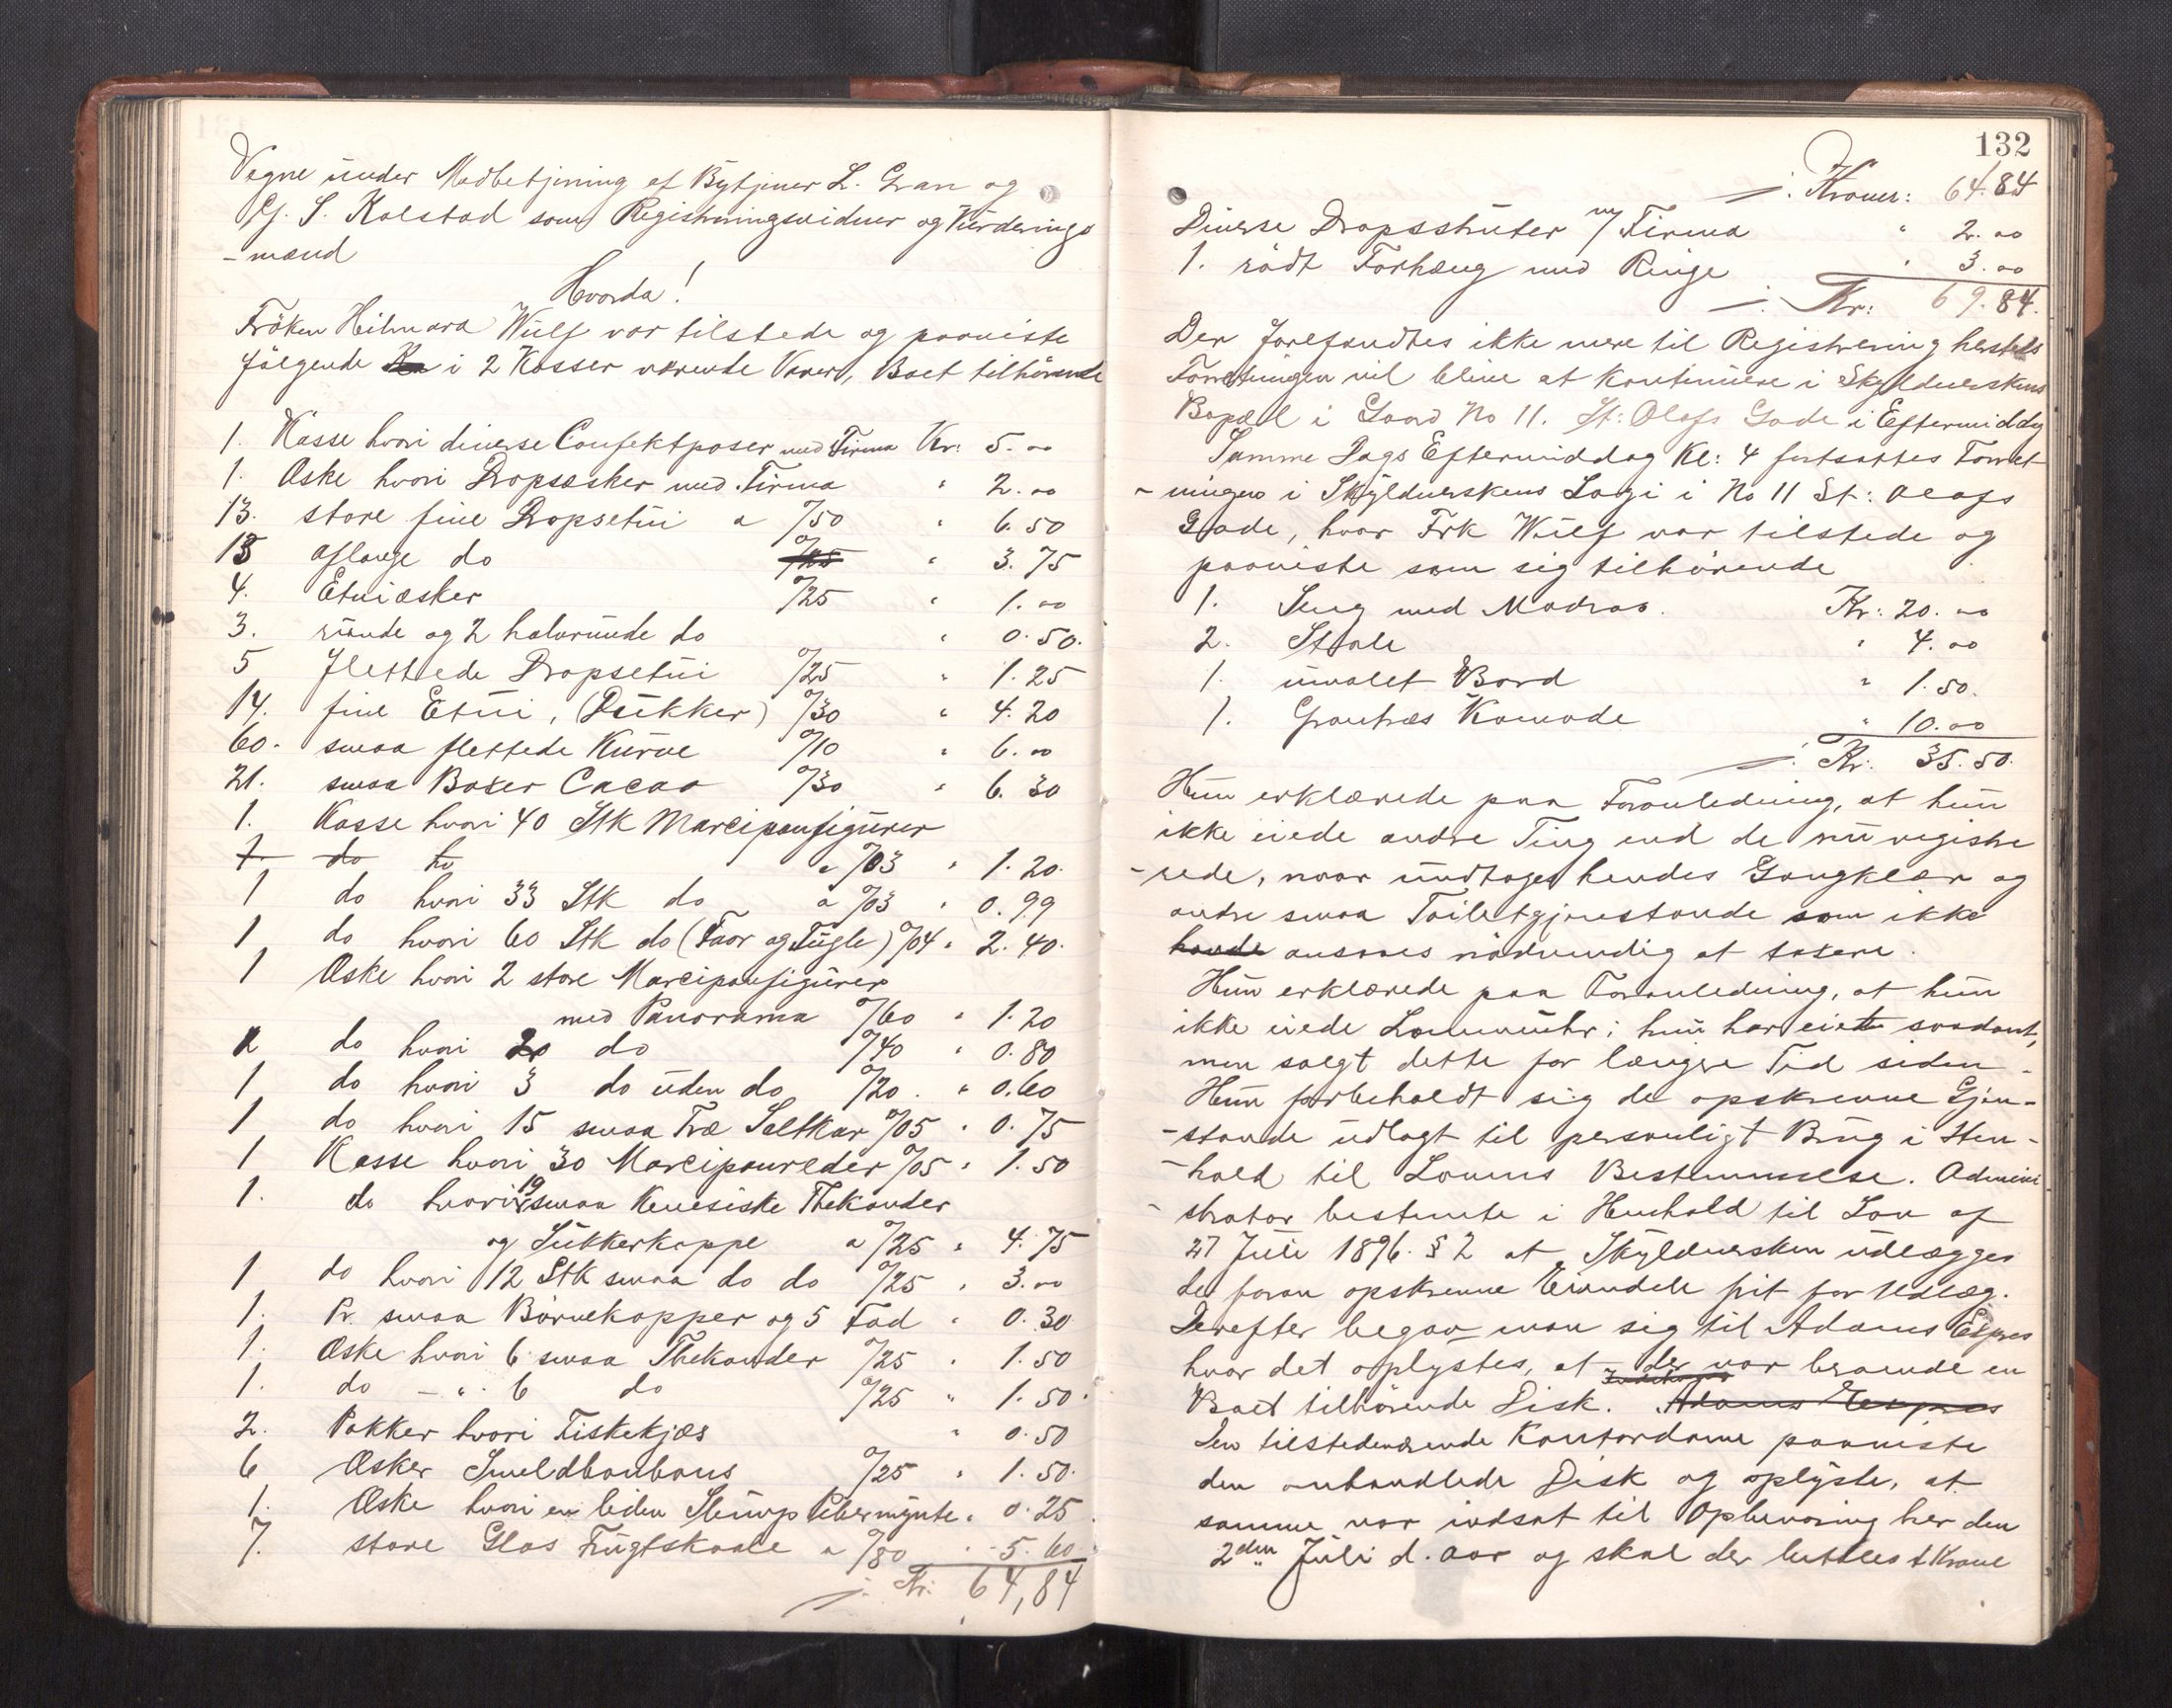 Vegne under Medbetjening af Bytjener L. Gran og
G. S. Kalstad som Registreringsvidner og Vurderings
-mænd
Hvorda!
Fröken Hilmara Wulf var tilstede og paaviste
fölgende i 2 Kasser værende Varer, Boet tilhörende
1. Kasse hvori diverse Confektposer med Firma Kr: 5.00
1. Æske hvori Dropsæsker med Firma " 2.00
13. store fine Dropsetui a 0/50 " 6.50
15 aflange do 0/25 " 3.75
4. Etuiæsker 0/25 " 1.00
3. runde og 2 halvrunde do " 0.50.
5 flettede Dropsetui 0/25 " 1.25
14. fine Etui, (Dukker) 0/30 " 4.20
60. smaa flettede Kurve 0/10 " 6.00
21. smaa Boxer Cacao 0/30 " 6.30
1. Kasse hvori 40 Stk Marcipanfigurer
1. do hv a 0/03 " 1.20.
1 do hvori 33 Stk do a 0/03 " 0.99
1 do hvori 60 Stk do (Faar og Fugle) 0/04 " 2.40.
1 Æske hvori 2 store Marcipanfigurer
med Panorama 0/60 " 1.20
1 do hvori 2 do 0/40 " 0.80
1 do hvori 3 do uden do 0/20. " 0.60
1 do hvori 15 smaa Træ Saltkar 0/05 " 0.75
1 Kasse hvori 30 Marcipanreder 0/05 " 1.50
1. do hvori 19 smaa Kinesiske Thekander
og Sukkerkoppe a 0/25 " 4.75
1 do hvori 12 Stk smaa do do 0/25 " 3.00
1. Pr. smaa Börnekopper og 5 Fad " 0.30
1. Æske hvori 6 smaa Thekander 0/25 " 1.50
1. do - " - 6 do 0/25 " 1.50.
2. Pakker hvori Fiskekjæs " 0.50
6 Æsker Smeldbonbons 0/25 " 1.50.
1. Æske hvori en liden Slump Pebermynte " 0.25
7. store Glas Frugtskaale a 0/80 " 5.60
Kr: 64,84
132
Kroner: 64.84
Diverse Dropsstruter m/ Firma " 2.00
1. rödt Forhæng med Ringe " 3.00
Kr: 69.84.
Der forefandtes ikke mere til Registrering hersteds
Forretningen vil blive at kontinuere i Skyldnerskens
Bopæl i Gaard No 11. St: Olafs Gade i Eftermiddag
Samme Dags Eftermiddag Kl: 4 fortsattes Forret-
-ningen i Skyldnerskens Logi i No 11 St: Olafs
Gade, hvor Frk Wulf var tilstede og
paaviste som sig tilhörende
1. Seng med Madras. Kr: 20.00
2. Stole " 4.00
1. umalet Bord " 1.50.
1. Grantræs Komode " 10.00
Kr: 35.50.
Hun erklærede paa Foranledning, at hun
ikke eiede andre Ting end de nu registre
-rede, naar undtages hendes Gangklær og
andre smaa Toiletgjenstande som ikke
havde ansaaes nödvendig at taxere.
Hun erklærede paa Foranledning, at hun
ikke eiede Lommeuhr; hun har eiet saadant,
men solgt dette for længere Tid siden.
Hun forbeholdt sig de opskrevne Gjen-
-stande udlagt til personligt Brug i Hen-
-hold til Lovens Bestemmelse. Admini
-strator bestemte i Henhold til Lov af
27 Juli 1896. § 2 at Skyldnersken udlægges
de foran opskrevne Eiendele frit for Udlæg.
Derefter begav man sig til Adams Expres
hvor det oplystes, at der var beroende en
Boet tilhörende Disk. Adams Expres
Den tilstedeværende Kontordame paaviste
den omhandlede Disk og oplyste, at
samme var indsat til Opbevaring her den
2den Juli d. Aar og skal der betales 1 Krone